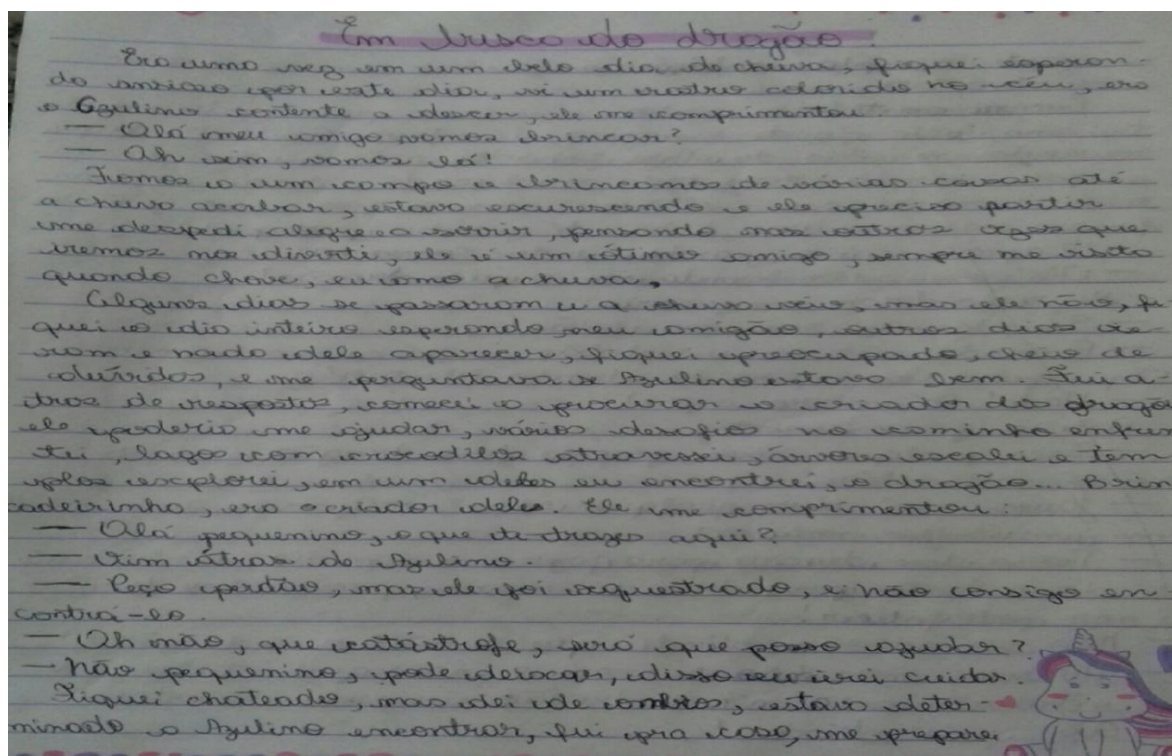 Em busca do dragão.
Era uma vez em um belo dia de chuva, fiquei esperan-
do ansioso por este dia, vi um rastro colorido no céu, era
o Azulino contente a descer, ele me comprimentou.
— Olá meu amigo vamos brincar?
— Ah sim, vamos lá!
Fomos a um campo e brincamos de várias coisas até
a chuva acabar, estava escurescendo e ele precisa partir
me despedi alegre e a sorrir, pensando nas outras vezes que
iremos nos diverti, ele é um ótimo amigo, sempre me visita
quando chove, eu amo a chuva.
Alguns dias se passaram e a chuva veio, mas ele não, fi
quei o dia inteiro esperando meu amigão, outros dias vie
ram e nada dele aparecer, fiquei preocupado, cheio de
dúvidas, e me perguntava se Azulino estava bem. Fui a-
tras de respostas, comecei a procurar o criador do dragão
ele poderia me ajudar, vários desafios no caminho enfren
tei, lagos com crocodilos atravessei, árvores escalei e tem
plos explorei, em um deles eu encontrei, o dragão... Brin
cadeirinha, era o criador deles. Ele me comprimentou:
— Olá pequenino, o que te trazes aqui?
— Vim átras do Azulino.
— Peço perdão, mas ele foi sequestrado, e não consigo en
contrá-lo.
— Oh não, que catástrofe, será que posso ajudar?
— Não pequenino, pode descançar, disso eu irei cuidar.
Fiquei chateado, mas dei de ombros, estava deter-
minado o Azulino encontrar, fui pra casa, me prepare